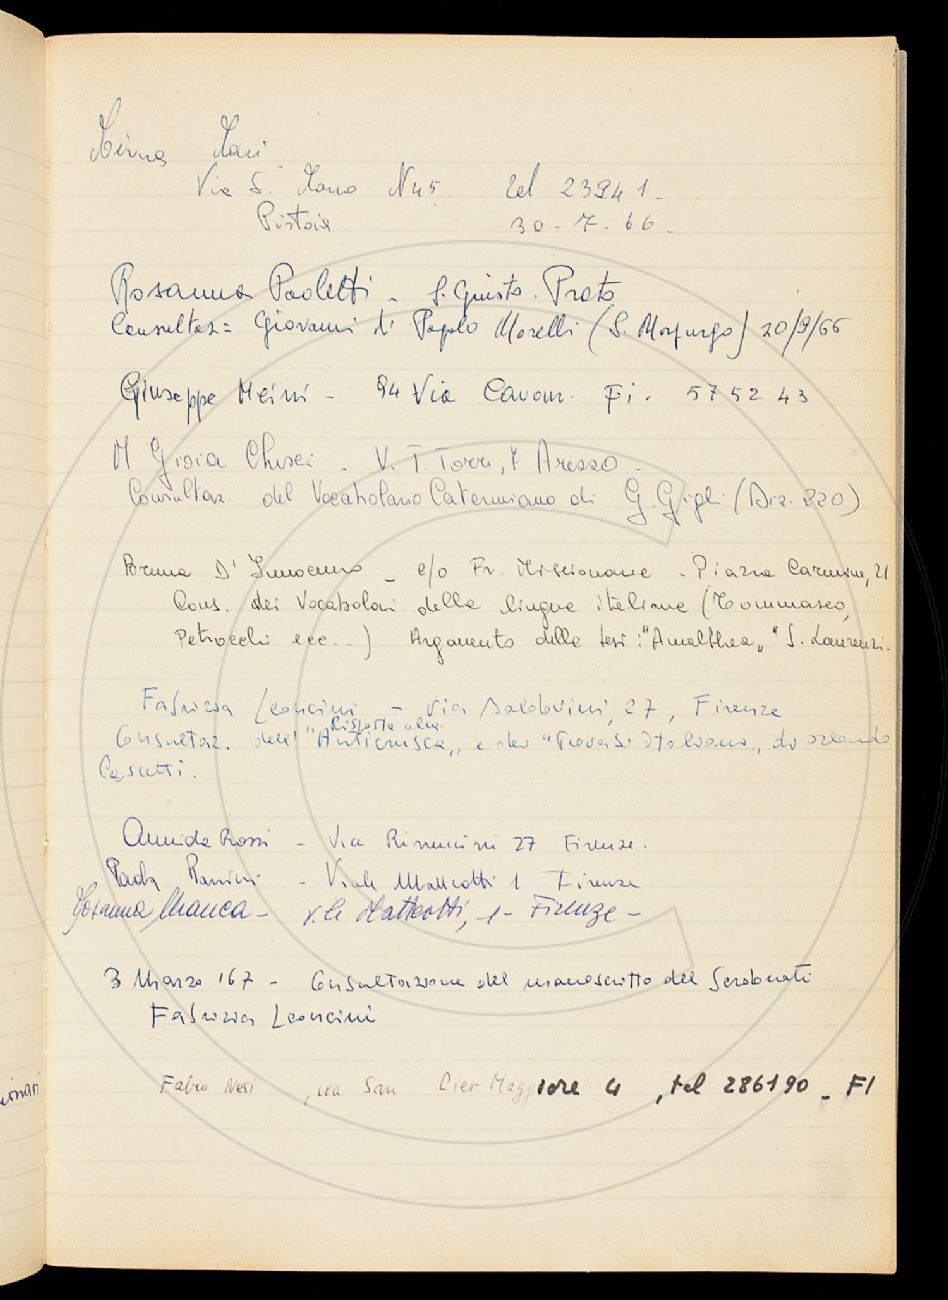 Mirna Mari
Via S. Marco N 45. tel 23941.
Pistoia 30-7-66.
Rosanna Paoletti - S. Giusto. Prato
Consultaz: Giovanni di Pagolo Morelli (S. Morpurgo) 20/9/66
Giuseppe Meini - 94 Via Cavour. Fi. 575243
M Gioia Chisci - V. T. Torre, 7 Arezzo.
Consultaz. del Vocabolario Cateriniano di G. Gigli (Diz. 220)
Bruna D'Innocenzo - c/o Fr. Missionarie - Piazza Carmine, 21
Cons. dei Vocabolari della lingua italiana (Tommaseo,
Petrocchi ecc...) Argomento della tesi: "Amalthea" S. Laurenzi.
Fabrizia Leoncini - Via Baldovini, 27, Firenze
Risposta alla
Consultaz. dell' "Anticrusca" e dei "Proverbi Italiani" di Orlando
Pescetti.
Armida Rossi - Via Rinuccini 27 Firenze.
Paola Pannini - Viale Matteotti 1 Firenze
Rosanna Manca - V.le Matteotti, 1 - Firenze -
3 Marzo '67 - Consultazione del manoscritto del Serdonati
Fabrizia Leoncini
Fabio Nesi, via San Pier Maggiore 4, tel 286190 - FI